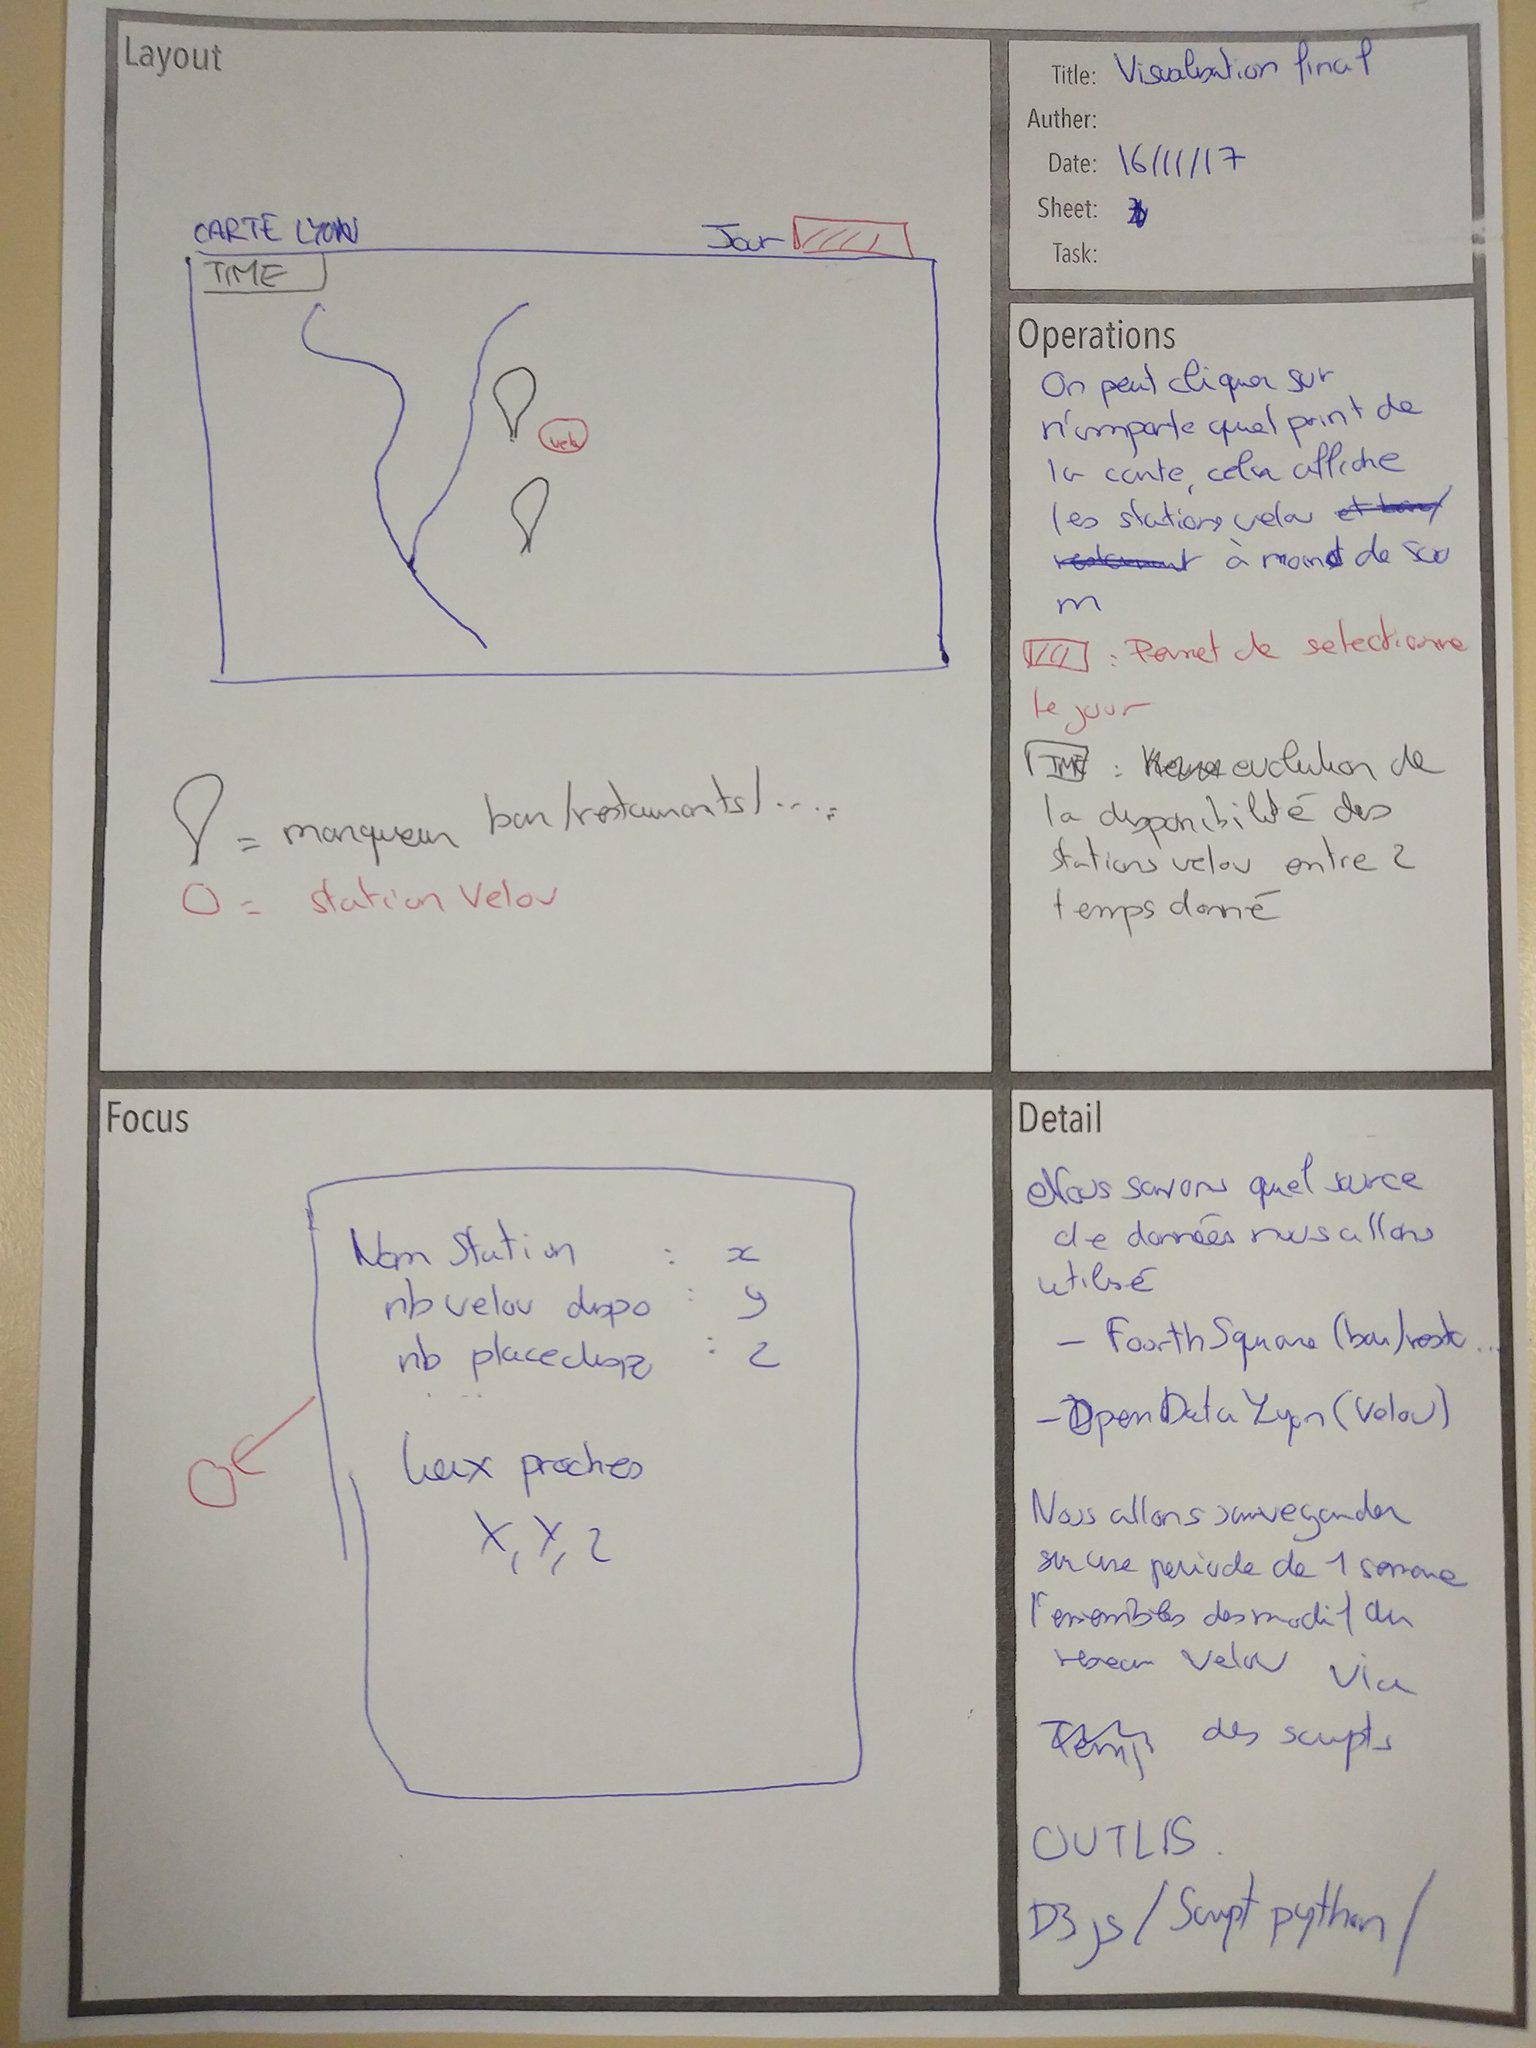 Layout
CARTE LYON
Jour
TIME
velov
= marqueur bar/restaurants/....
= station Velov
Title: Visualisation final
Auther:
Date: 16/11/17
Sheet:
Task:
Operations
On peut cliquer sur
n'importe quel point de
la carte, cela affiche
les stations velov et bar/
restaurant à moins de 500
m
: Permet de selectionne
le jour
TIME : evolution de
la disponibilité des
stations velov entre 2
temps donné
Focus
Nom Station : x
nb velov dispo : y
nb place dispo : z
....
lieux proches
X, Y, Z
Detail
Nous savons quel source
de données nous allons
utilisé
- FourthSquare (bar/resto...
- OpenData Lyon (Velov)
Nous allons sauvegarder
sur une periode de 1 semaine
l'ensembles des modif du
reseau velov via
Temps des scripts
OUTLIS.
D3 js / Script python /